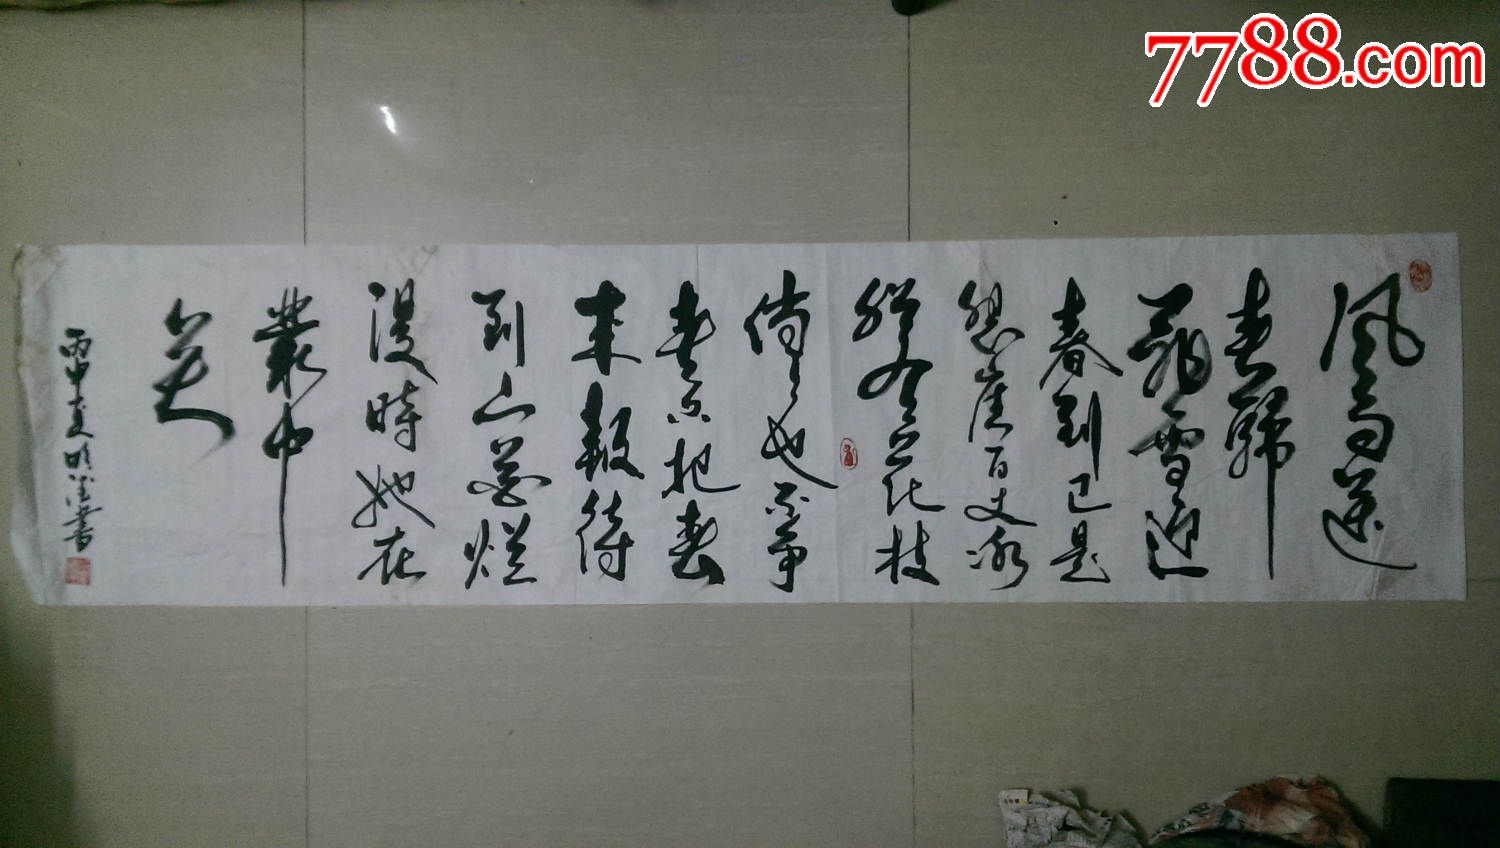 7788.com
风雨送
春歸
飛雪迎
春到已是
悬崖百丈冰
猶有花枝
俏俏也不争
春只把春
来報待
到山花爛
漫時她在
叢中
笑
丙申夏書